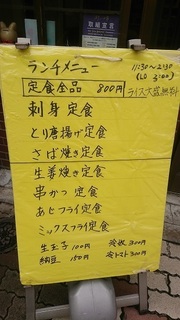 ランチメニュー
11:30〜2:30
(LO 2:00)
定食全品 800円
ライス大盛無料
刺身定食
とり唐揚げ定食
さば焼き定食
生姜焼き定食
串かつ定食
あじフライ定食
ミックスフライ定食
生玉子 100円 冷奴 300円
納豆 150円 冷トマト 300円